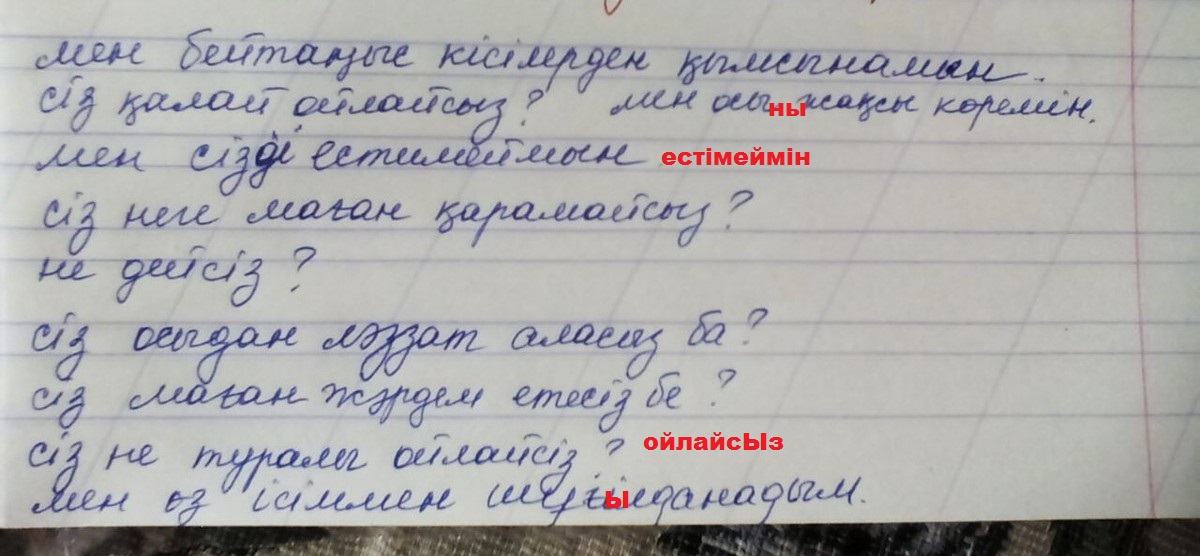 мен бейтаныс кісілерден қымсынамын.
сіз қалай ойлайсыз? мен осыны жақсы көремін.
мен сізді естимеймын естімеймін
сіз неге маған қарамайсыз?
не дейсіз?
сіз осыдан ләззат аласыз ба?
сіз маған жәрдем етесіз бе?
сіз не туралы ойлайсіз? ойлайсЫз
мен өз ісіммен шұғыланадым.